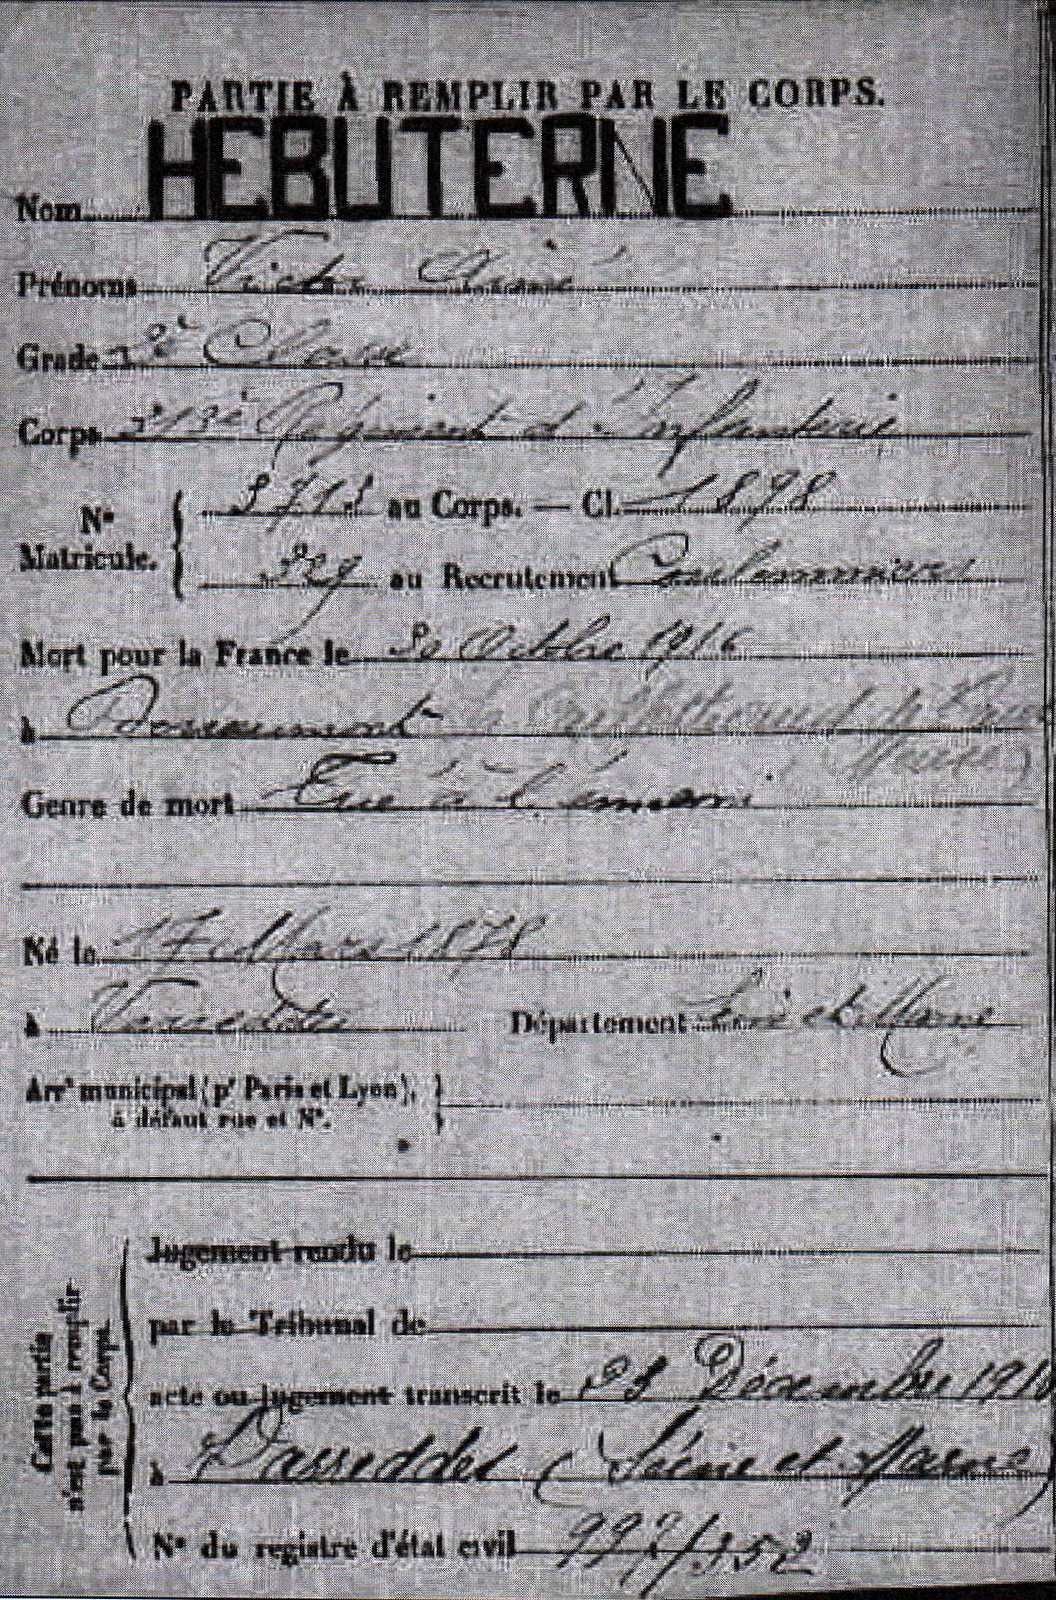 PARTIE À REMPLIR PAR LE CORPS.
Nom HÉBUTERNE
Prénoms Victor
Grade 2e Classe
Corps Régiment d'Infanterie
No Matricule. au Corps. — Cl. 1898
au Recrutement Coulommiers
Mort pour la France le Octobre 1916
à Douaumont
Genre de mort Tué à l'ennemi
Né le 17 Mars 1878
à Département Seine et Marne
Arrt municipal (pr Paris et Lyon),
à défaut rue et No.
Cette partie
n'est pas à remplir
par le Corps.
Jugement rendu le
par le Tribunal de
acte ou jugement transcrit le 23 Décembre 1916
à (Seine et Marne)
No du registre d'état civil